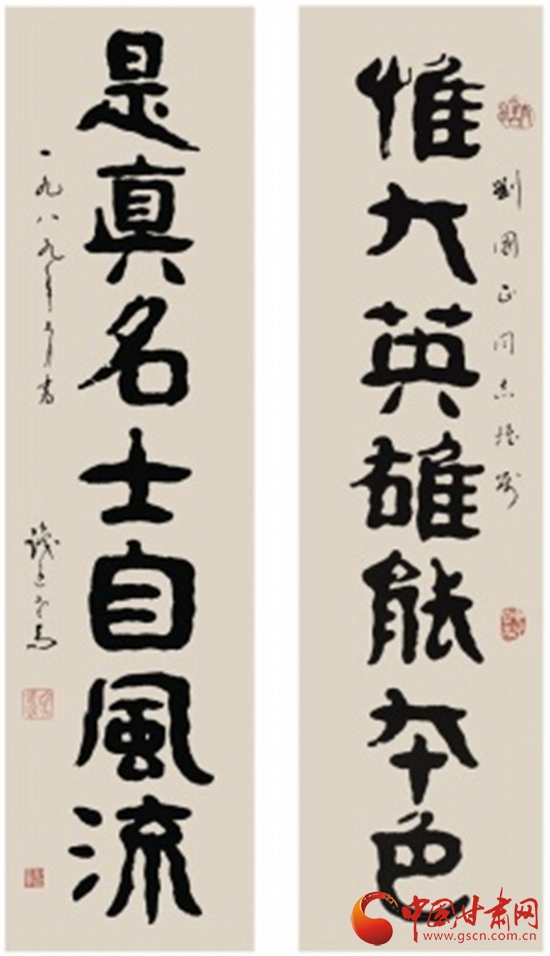 惟大英雄能本色
劉國正同志檢囑
是真名士自風流
一九八九年六月書
中国甘肃网
www.gscn.com.cn